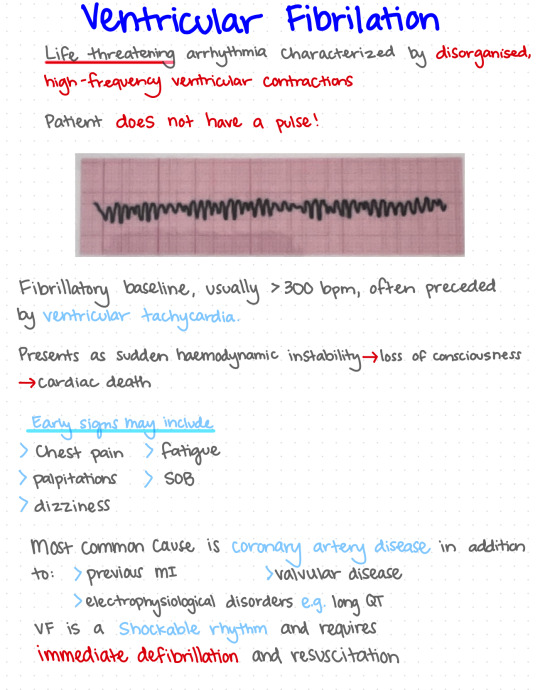 Ventricular Fibrilation
Life threatening arrhythmia characterized by disorganised,
high-frequency ventricular contractions
Patient does not have a pulse!
Fibrillatory baseline, usually >300 bpm, often preceded
by ventricular tachycardia.
Presents as sudden haemodynamic instability→loss of consciousness
→cardiac death
Early signs may include
> Chest pain > fatigue
> palpitations > SOB
> dizziness
Most common cause is coronary artery disease in addition
to: > previous MI > valvular disease
> electrophysiological disorders e.g. long QT
VF is a shockable rhythm and requires
immediate defibrillation and resuscitation